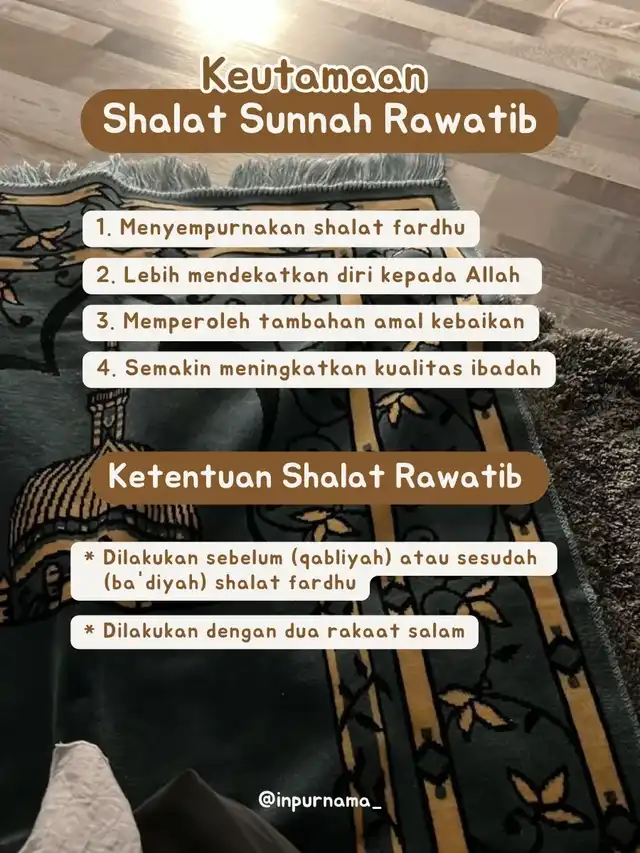 Keutamaan
Shalat Sunnah Rawatib
1. Menyempurnakan shalat fardhu
2. Lebih mendekatkan diri kepada Allah
3. Memperoleh tambahan amal kebaikan
4. Semakin meningkatkan kualitas ibadah
Ketentuan Shalat Rawatib
* Dilakukan sebelum (qabliyah) atau sesudah
(ba'diyah) shalat fardhu
* Dilakukan dengan dua rakaat salam
@inpurnama_